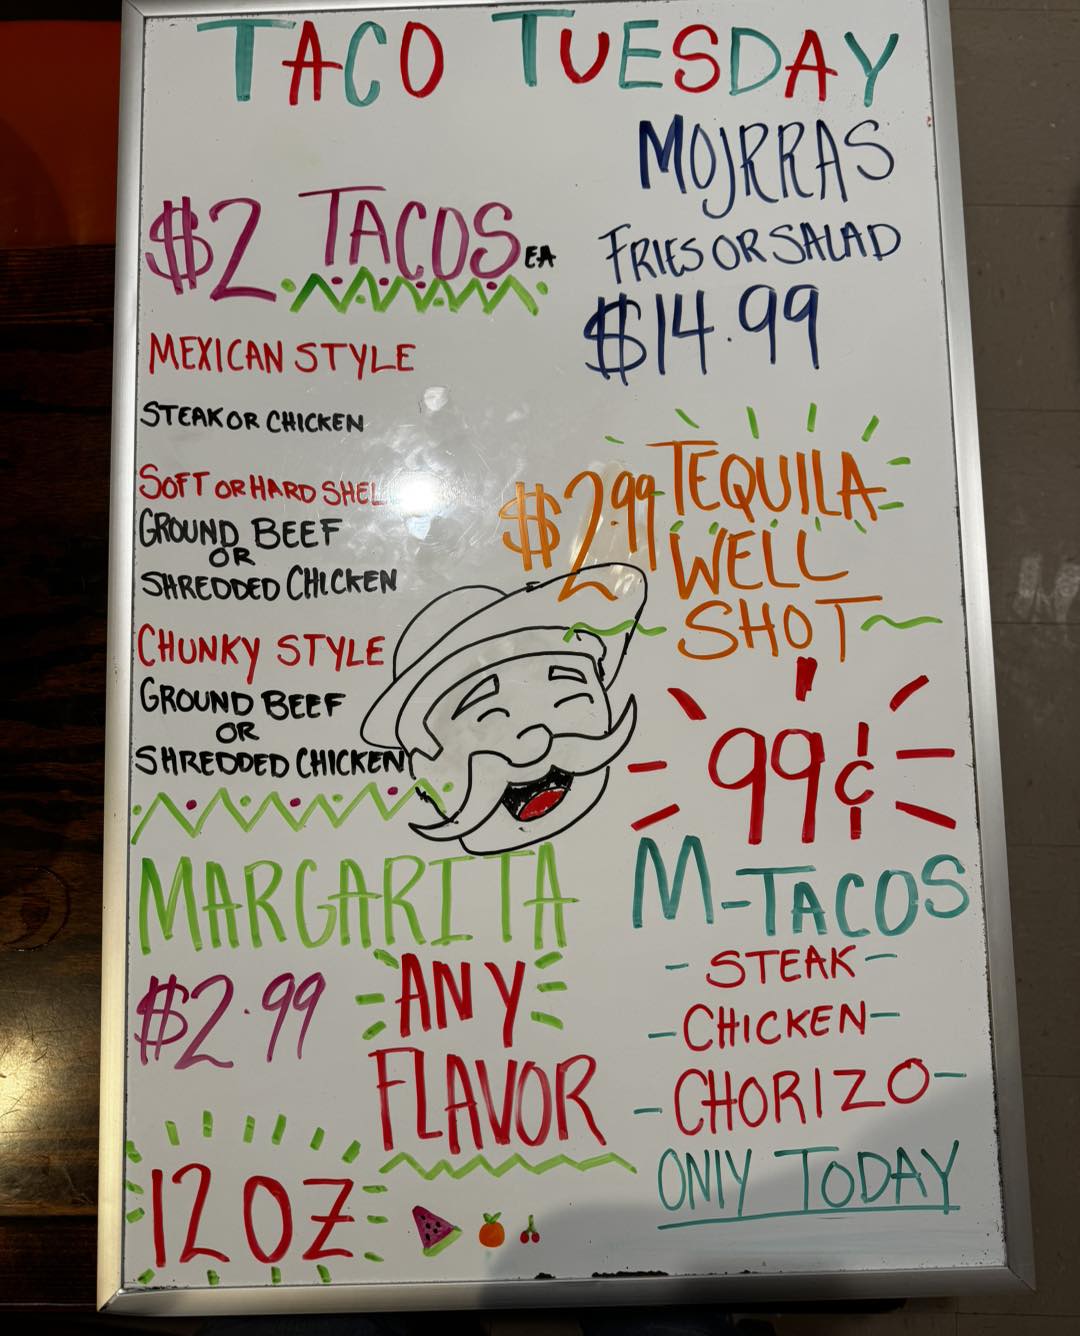 TACO TUESDAY
MOJRRAS
FRIES OR SALAD
$14.99
$2 TACOS EA
MEXICAN STYLE
STEAK OR CHICKEN
SOFT OR HARD SHEL
GROUND BEEF
OR
SHREDDED CHICKEN
CHUNKY STYLE
GROUND BEEF
OR
SHREDDED CHICKEN
$2.99 TEQUILA
WELL
SHOT
99¢
M-TACOS
- STEAK -
- CHICKEN -
- CHORIZO -
ONLY TODAY
MARGARITA
$2.99 ANY
FLAVOR
12 OZ